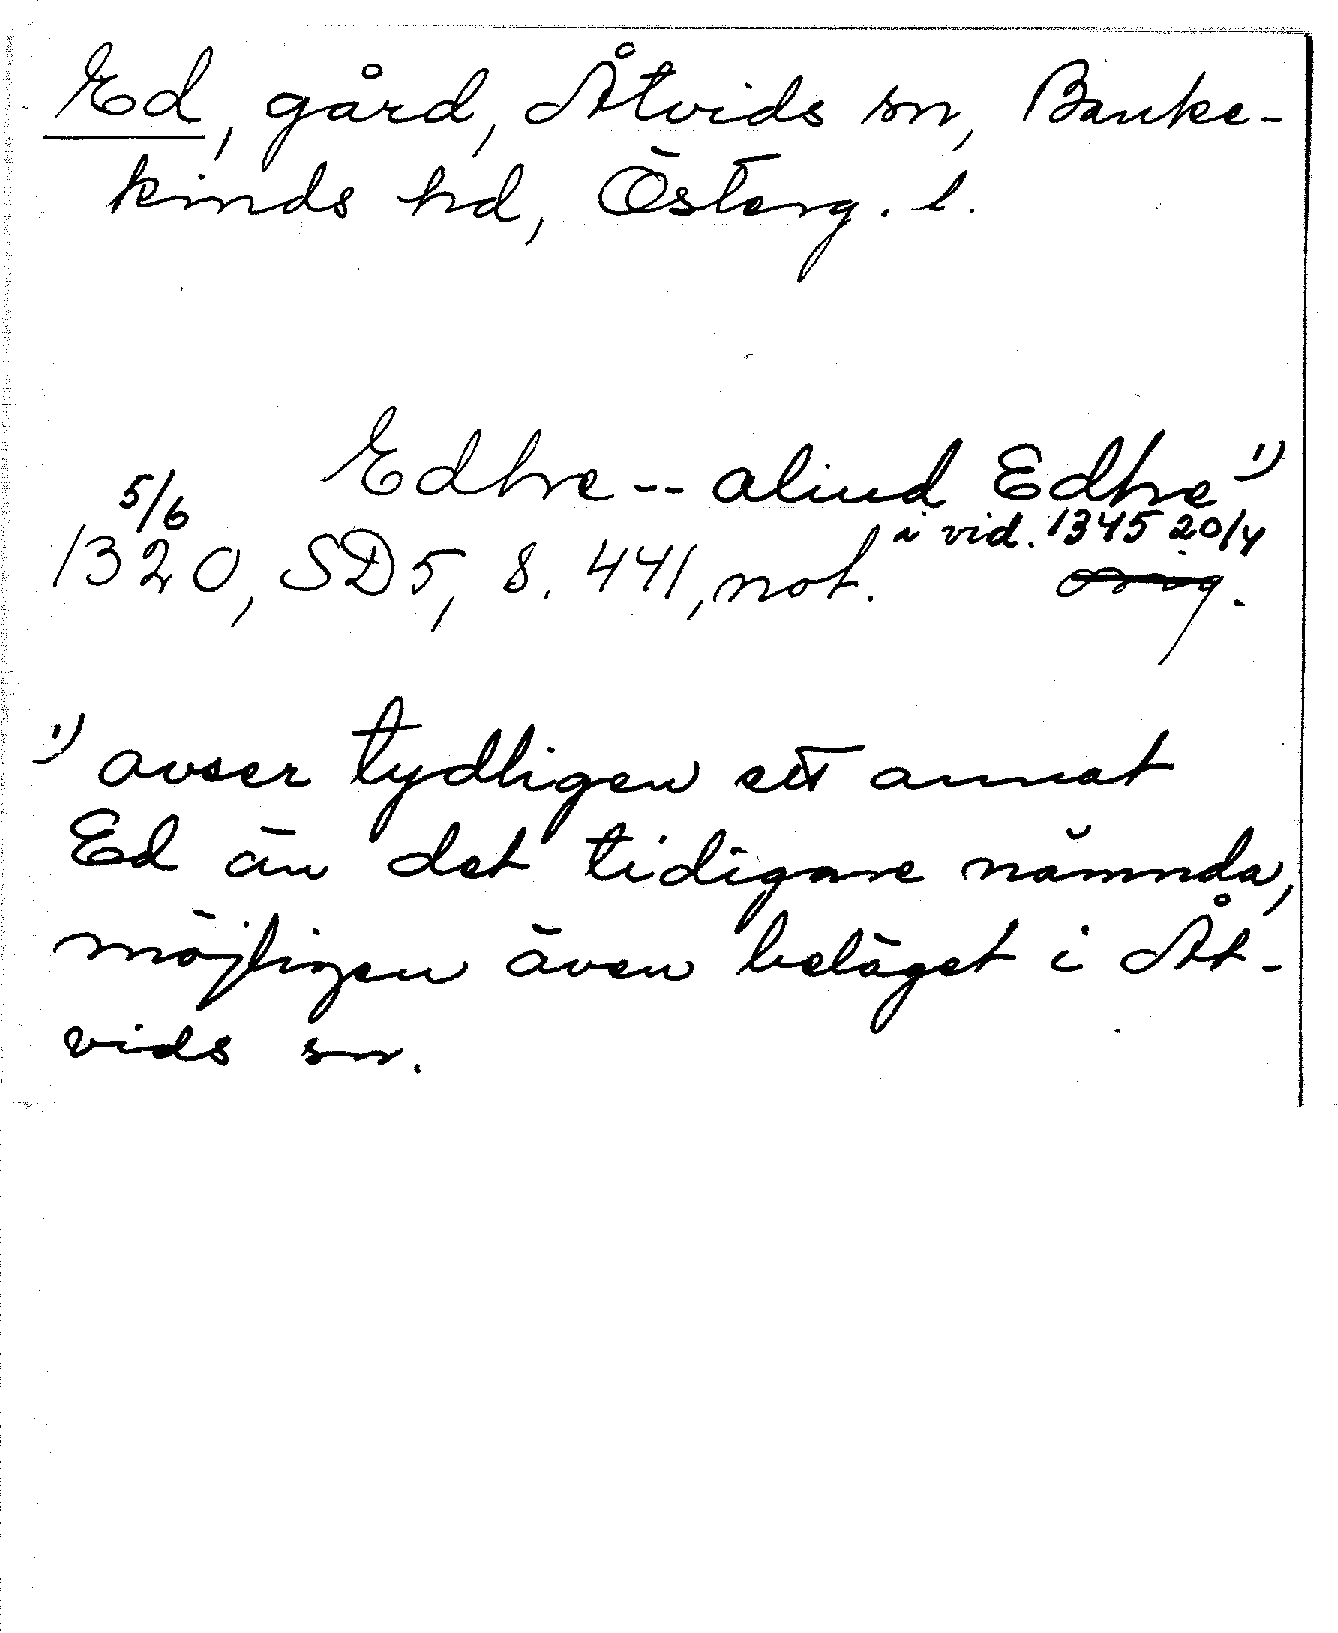 Ed, gård, Åtvids sn, Banke-
kinds hd, Österg. l.
Edhre -- aliud Edhre ¹)
5/6
1320, SD 5, s. 441, not. i vid. 1345 20/4
orig.
¹) avser tydligen ett annat
Ed än det tidigare nämnda,
möjligen även beläget i Åt-
vids sn.